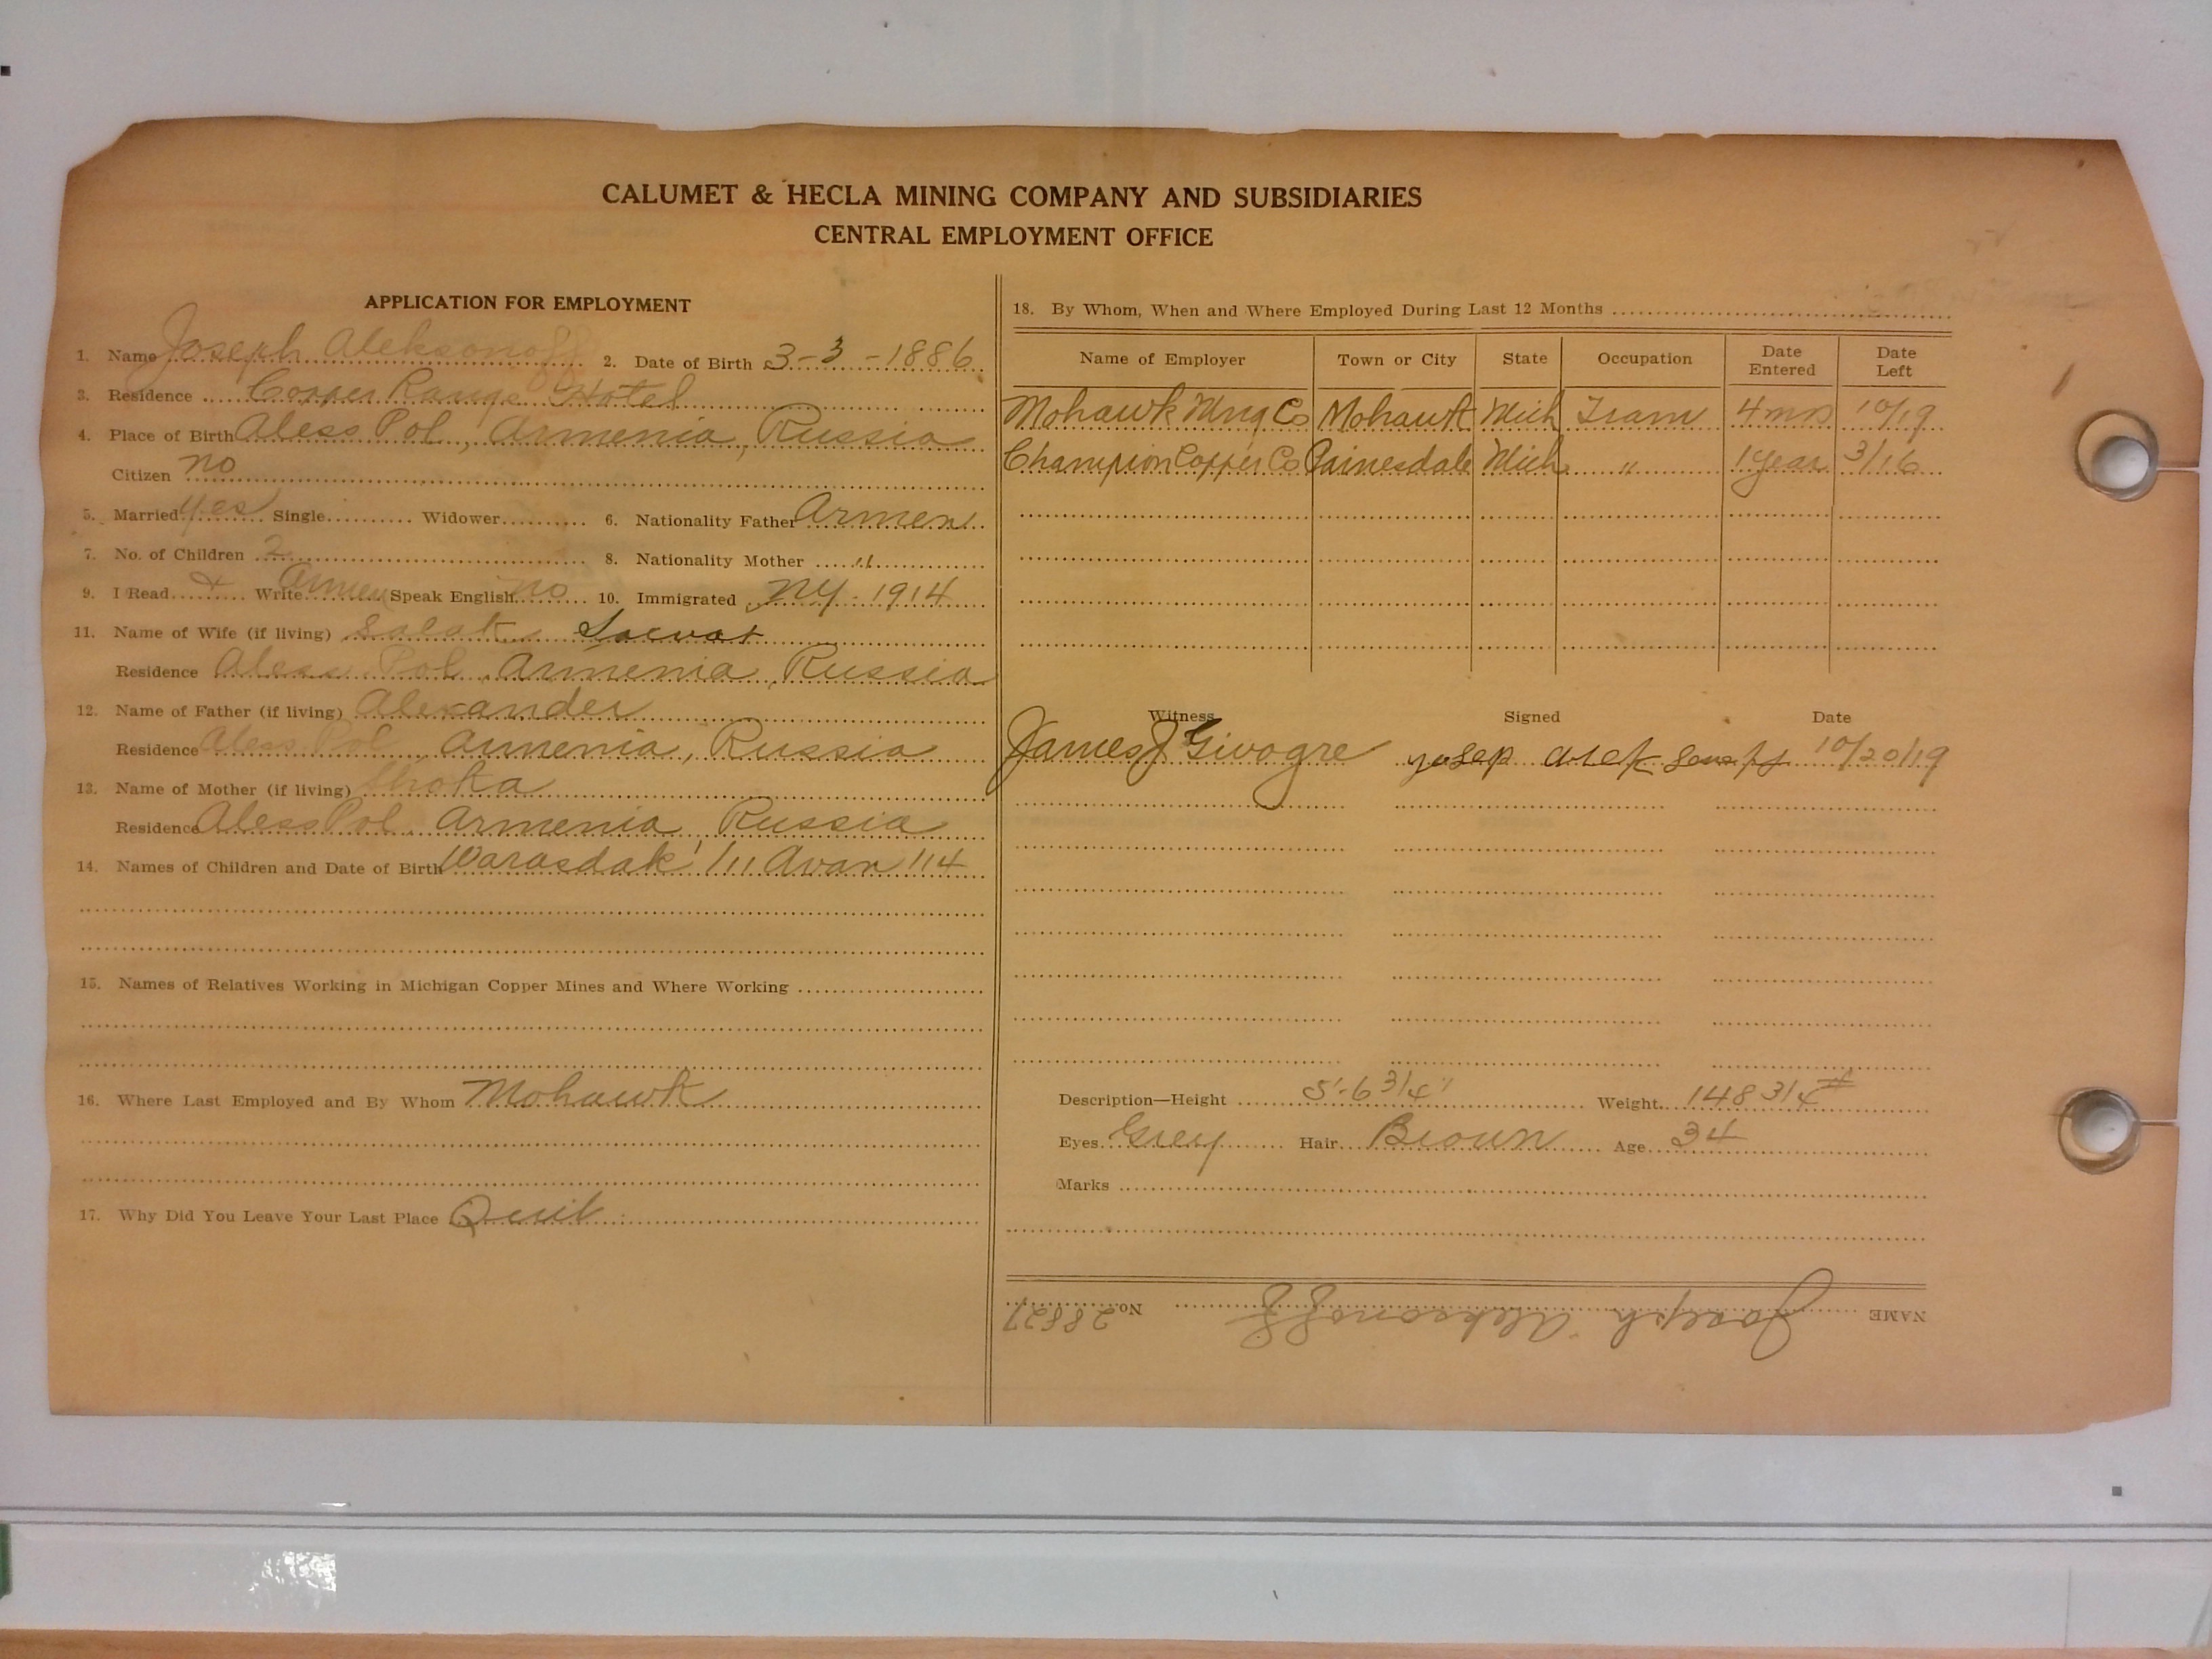 CALUMET & HECLA MINING COMPANY AND SUBSIDIARIES
CENTRAL EMPLOYMENT OFFICE
APPLICATION FOR EMPLOYMENT
1. Name Joseph Aleksonoff 2. Date of Birth 3-3-1886
3. Residence Copper Range Hotel
4. Place of Birth Aless Pol, Armenia, Russia
Citizen no
5. Married yes Single Widower 6. Nationality Father Armen
7. No. of Children 2 8. Nationality Mother "
9. I Read + Write Armen Speak English no 10. Immigrated NY-1914
11. Name of Wife (if living) Sacvat
Residence Aless Pol, Armenia, Russia
12. Name of Father (if living) Alexander
Residence Aless Pol, Armenia, Russia
13. Name of Mother (if living) Shoka
Residence Aless Pol, Armenia Russia
14. Names of Children and Date of Birth Warasdak '/11 Avan '14
15. Names of Relatives Working in Michigan Copper Mines and Where Working
16. Where Last Employed and By Whom Mohawk
17. Why Did You Leave Your Last Place Quit
18. By Whom, When and Where Employed During Last 12 Months
Name of Employer Town or City State Occupation Date Entered Date Left
Mohawk Mng Co Mohawk Mich Tram 4 mos 10/19
Champion Copper Co Painesdale Mich " 1 year 3/16
Witness Signed Date
James J Givogre yosep 10/20/19
Description—Height 5'-6 3/4" Weight 148 3/4 #
Eyes Grey Hair Brown Age 34
Marks
NAME Joseph Aleksonoff No. 28827